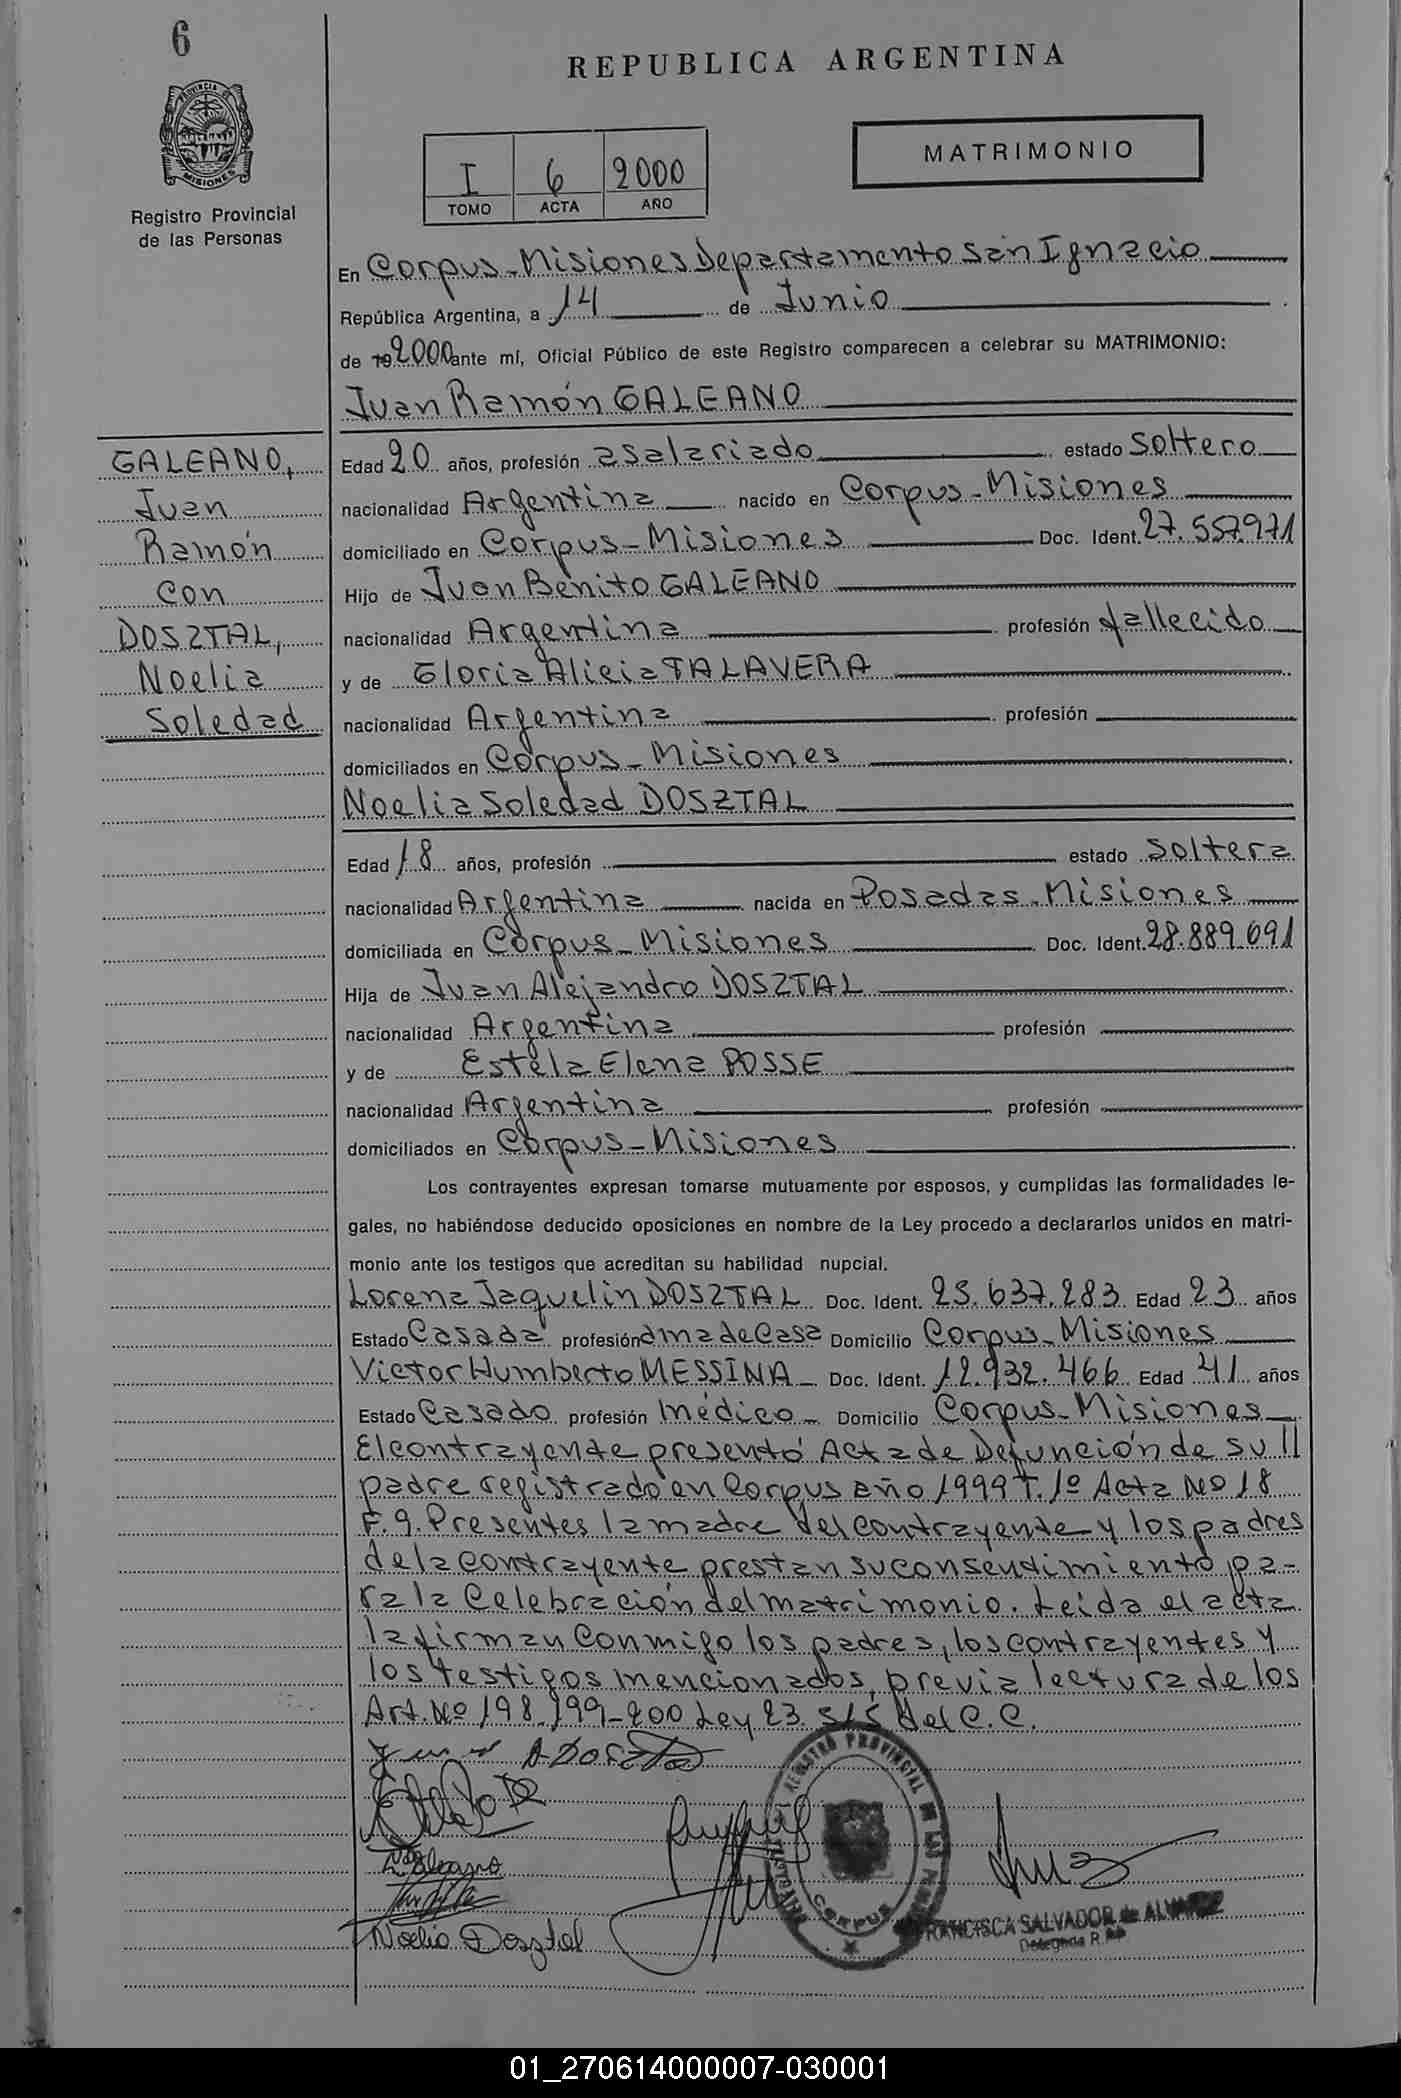 6
REPUBLICA ARGENTINA
PROVINCIA DE
MISIONES
Registro Provincial
de las Personas
I 6 2000
TOMO ACTA AÑO
MATRIMONIO
En Corpus - Misiones Departamento San Ignacio
República Argentina, a 14 de Junio
de 192000 ante mí, Oficial Público de este Registro comparecen a celebrar su MATRIMONIO:
Juan Ramón GALEANO
GALEANO,
Juan
Ramón
con
DOSZTAL,
Noelia
Soledad
Edad 20 años, profesión asalariado estado Soltero
nacionalidad Argentina nacido en Corpus - Misiones
domiciliado en Corpus - Misiones Doc. Ident. 27.557.971
Hijo de Juan Benito GALEANO
nacionalidad Argentina profesión fallecido
y de Gloria Alicia TALAVERA
nacionalidad Argentina profesión
domiciliados en Corpus - Misiones
Noelia Soledad DOSZTAL
Edad 18 años, profesión estado soltera
nacionalidad Argentina nacida en Posadas - Misiones
domiciliada en Corpus - Misiones Doc. Ident. 28.889.691
Hija de Juan Alejandro DOSZTAL
nacionalidad Argentina profesión
y de Estela Elena POSSE
nacionalidad Argentina profesión
domiciliados en Corpus - Misiones
Los contrayentes expresan tomarse mutuamente por esposos, y cumplidas las formalidades le-
gales, no habiéndose deducido oposiciones en nombre de la Ley procedo a declararlos unidos en matri-
monio ante los testigos que acreditan su habilidad nupcial.
Lorena Jaquelin DOSZTAL Doc. Ident. 25.637.283 Edad 23 años
Estado Casada profesión ama de Casa Domicilio Corpus - Misiones
Victor Humberto MESSINA - Doc. Ident. 12.932.466 Edad 41 años
Estado Casado profesión Médico - Domicilio Corpus - Misiones
El contrayente presentó Acta de Defunción de su //
padre registrado en Corpus año 1999 T. 1º Acta Nº 18
F. 9. Presentes la madre del contrayente y los padres
de la contrayente prestan su consentimiento pa-
ra la Celebración del matrimonio. Leida el acta
la firman conmigo los padres, los contrayentes y
los testigos mencionados, previa lectura de los
Art. Nº 198-199-200 Ley 23.515 del C.C.
Noelia Dosztal
REGISTRO PROVINCIAL DE LAS
CORPUS
FRANCISCA SALVADOR de ALVAREZ
Delegada
01_270614000007-030001